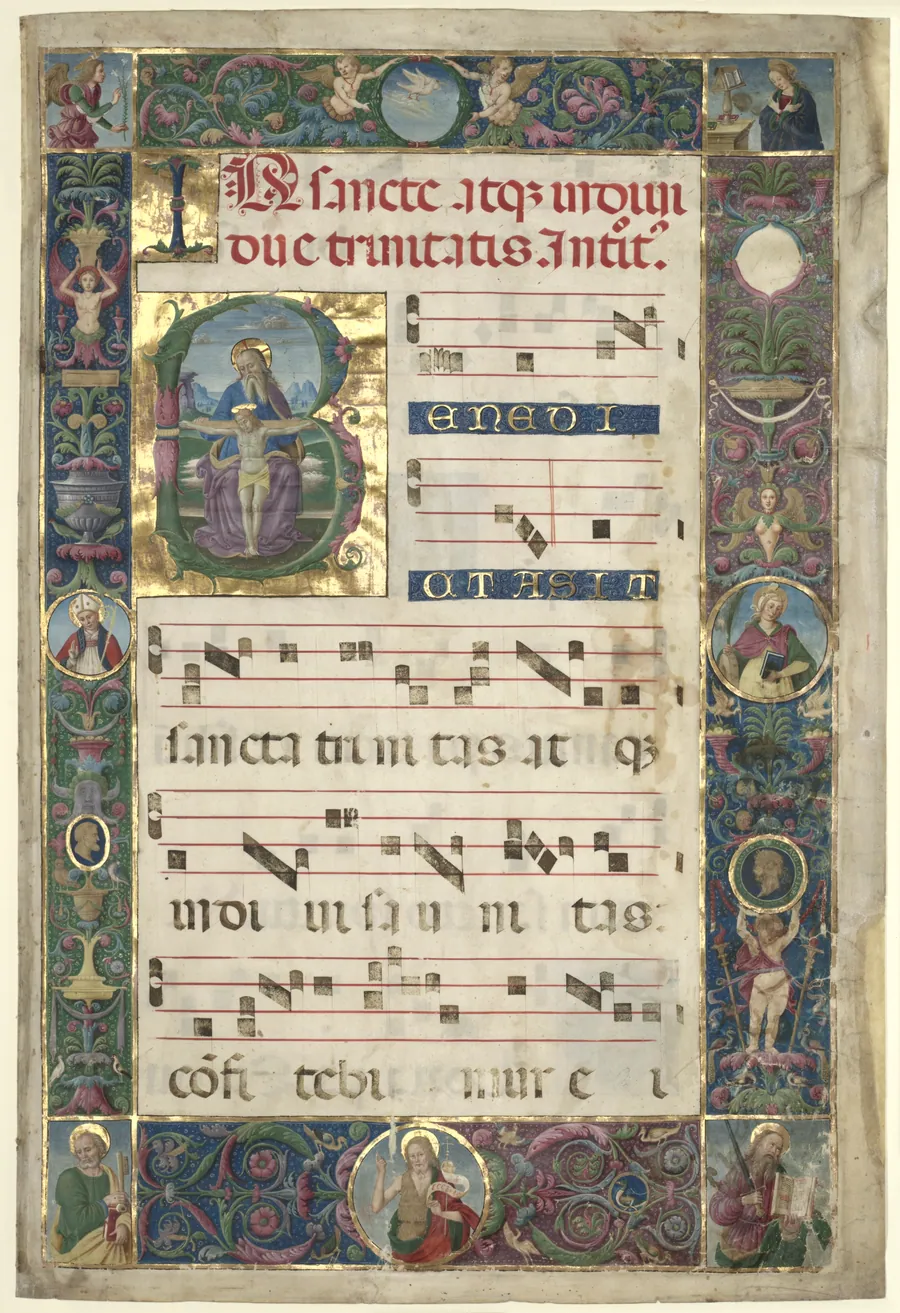 IN sancte atqꝫ indiui
due trinitatis. Intit᾽.
BENEDI
CTA SIT
sancta trinitas at qꝫ
indi uisa u ni tas:
cōfi tebimur e i